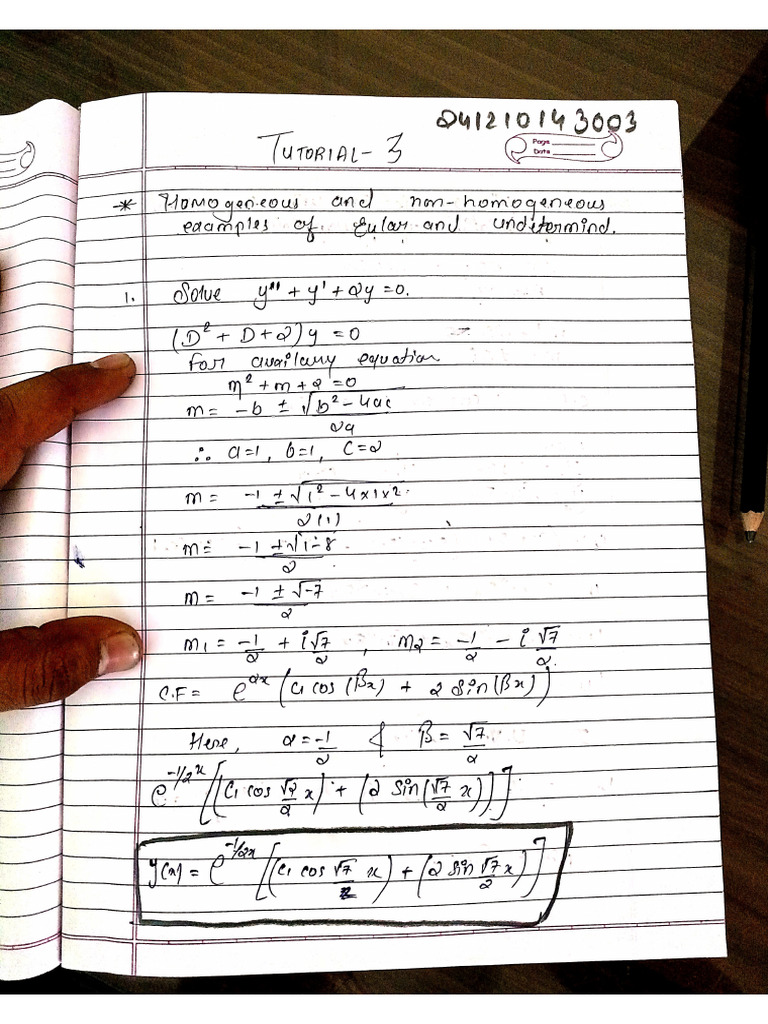 24121014 3003
Page
Date
TUTORIAL - 3
* Homogeneous and non-homogeneous
examples of Eular and undetermind.
1. Solve y'' + y' + 2y = 0.
(D² + D + 2) y = 0
for auxilary equation
m² + m + 2 = 0
m = -b ± √b² - 4ac
2a
∴ a=1, b=1, c=2
m = -1 ± √1² - 4x1x2
2(1)
m = -1 ± √1-8
2
m = -1 ± √-7
2
m1 = -1/2 + i√7/2 , m2 = -1/2 - i √7/2
C.F = e^αx (c1 cos (βx) + 2 sin (βx))
Here, α = -1/2 & β = √7/2
e^-1/2x [(c1 cos √7/2 x) + (2 sin (√7/2 x))]
y(x) = e^-1/2x [(c1 cos √7/2 x) + (2 sin √7/2 x)]